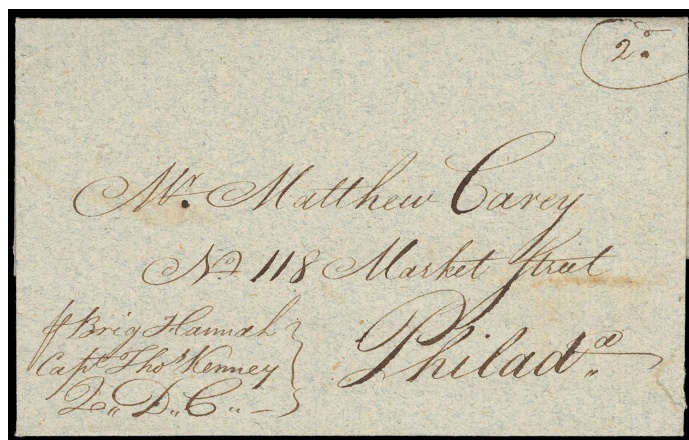 2.
Mr. Matthew Carey
No. 118 Market Street
Philada
Brig Hannah
Capt. Thos Kenney
D,, C,,